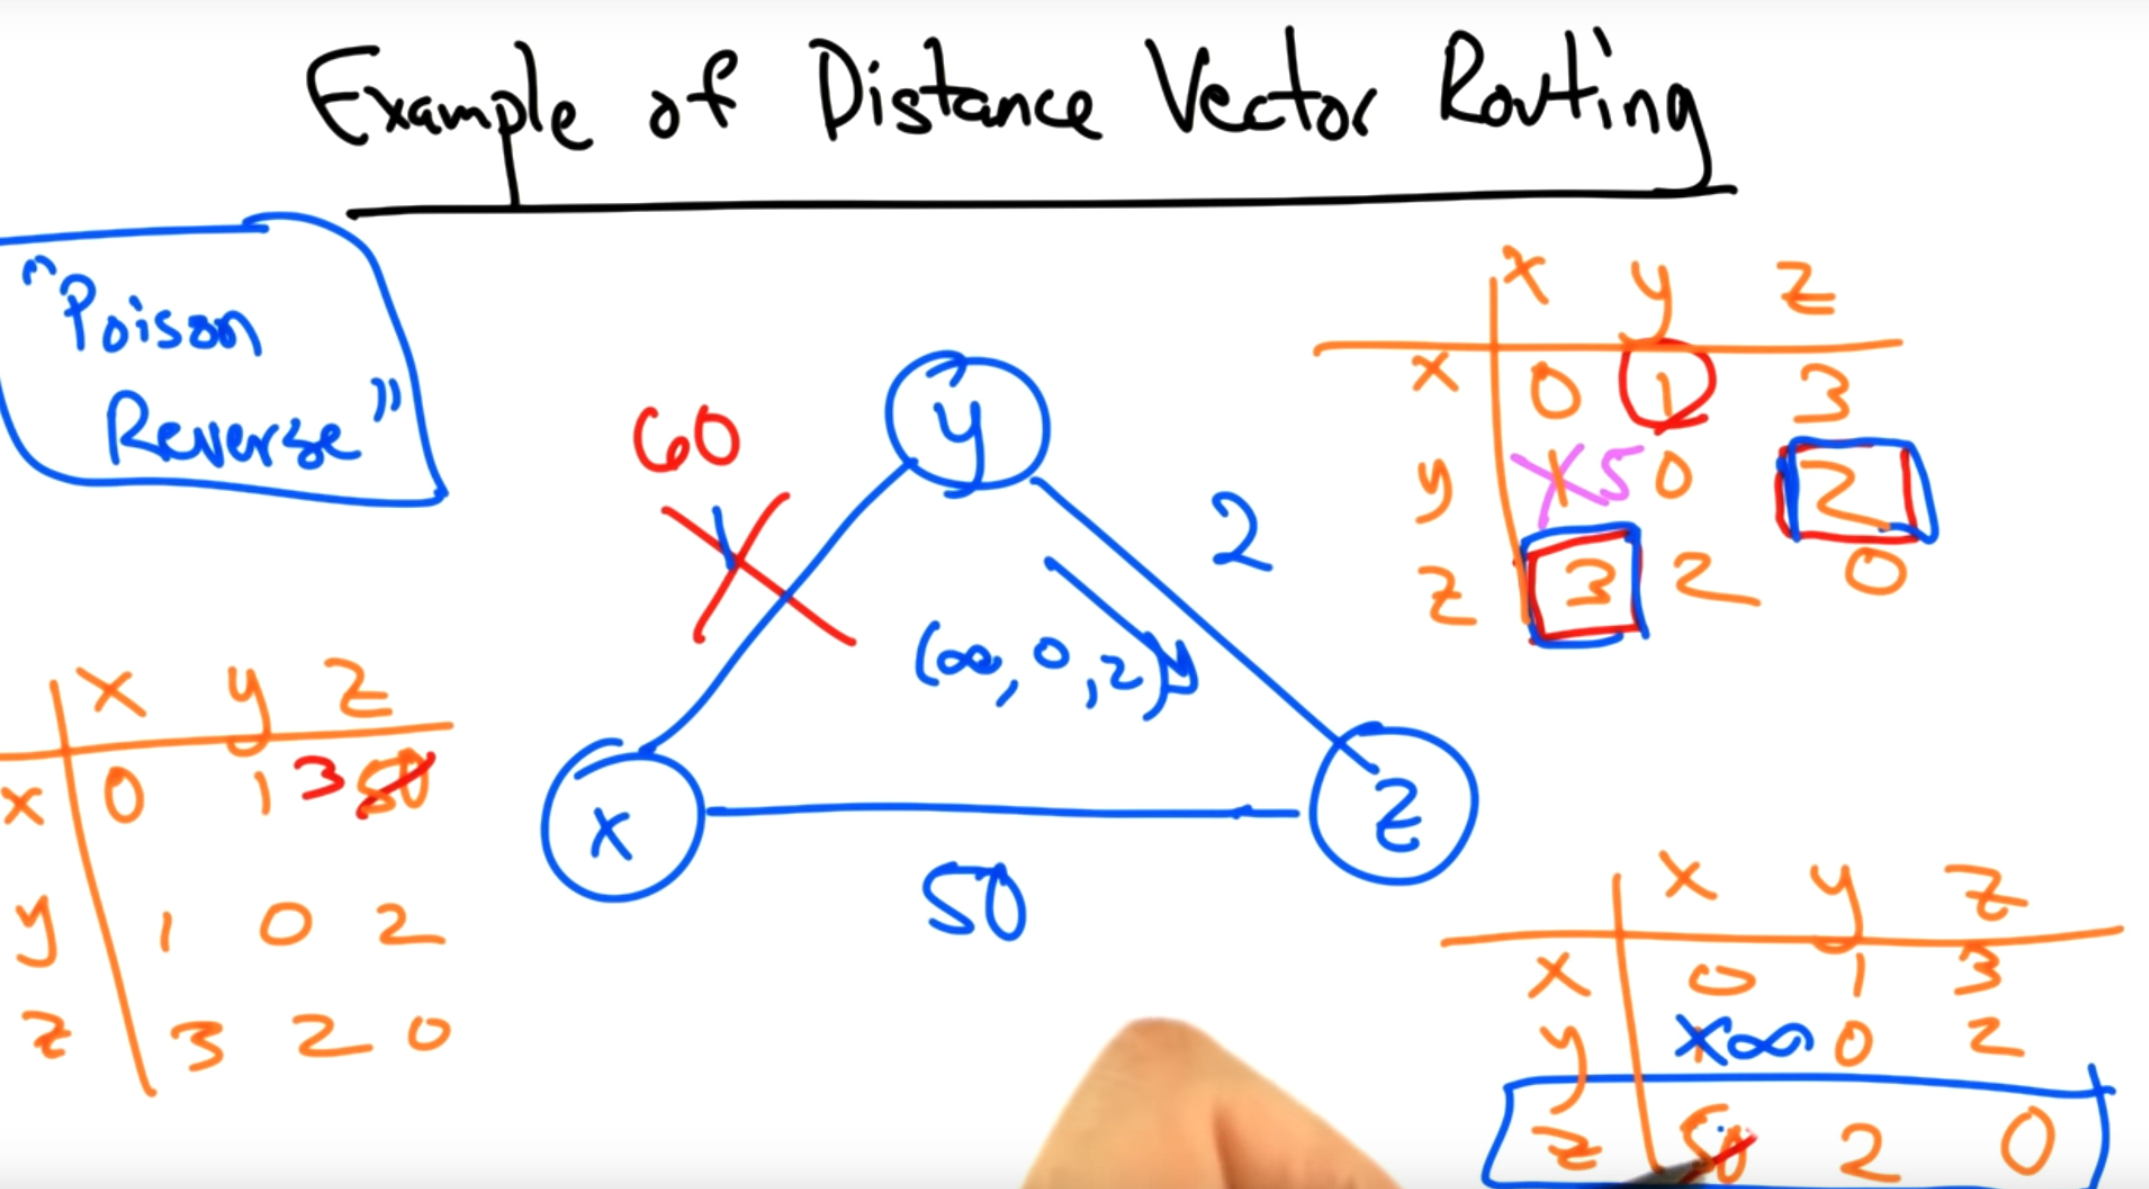 Example of Distance Vector Routing
"Poison
Reverse"
x y z
x 0 1 3
y 1 5 0 2
z 3 2 0
60
1
y
2
(∞, 0, 2)
x
z
50
x y z
x 0 1 3 50
y 1 0 2
z 3 2 0
x y z
x 0 1 3
y 1 ∞ 0 2
z 50 2 0